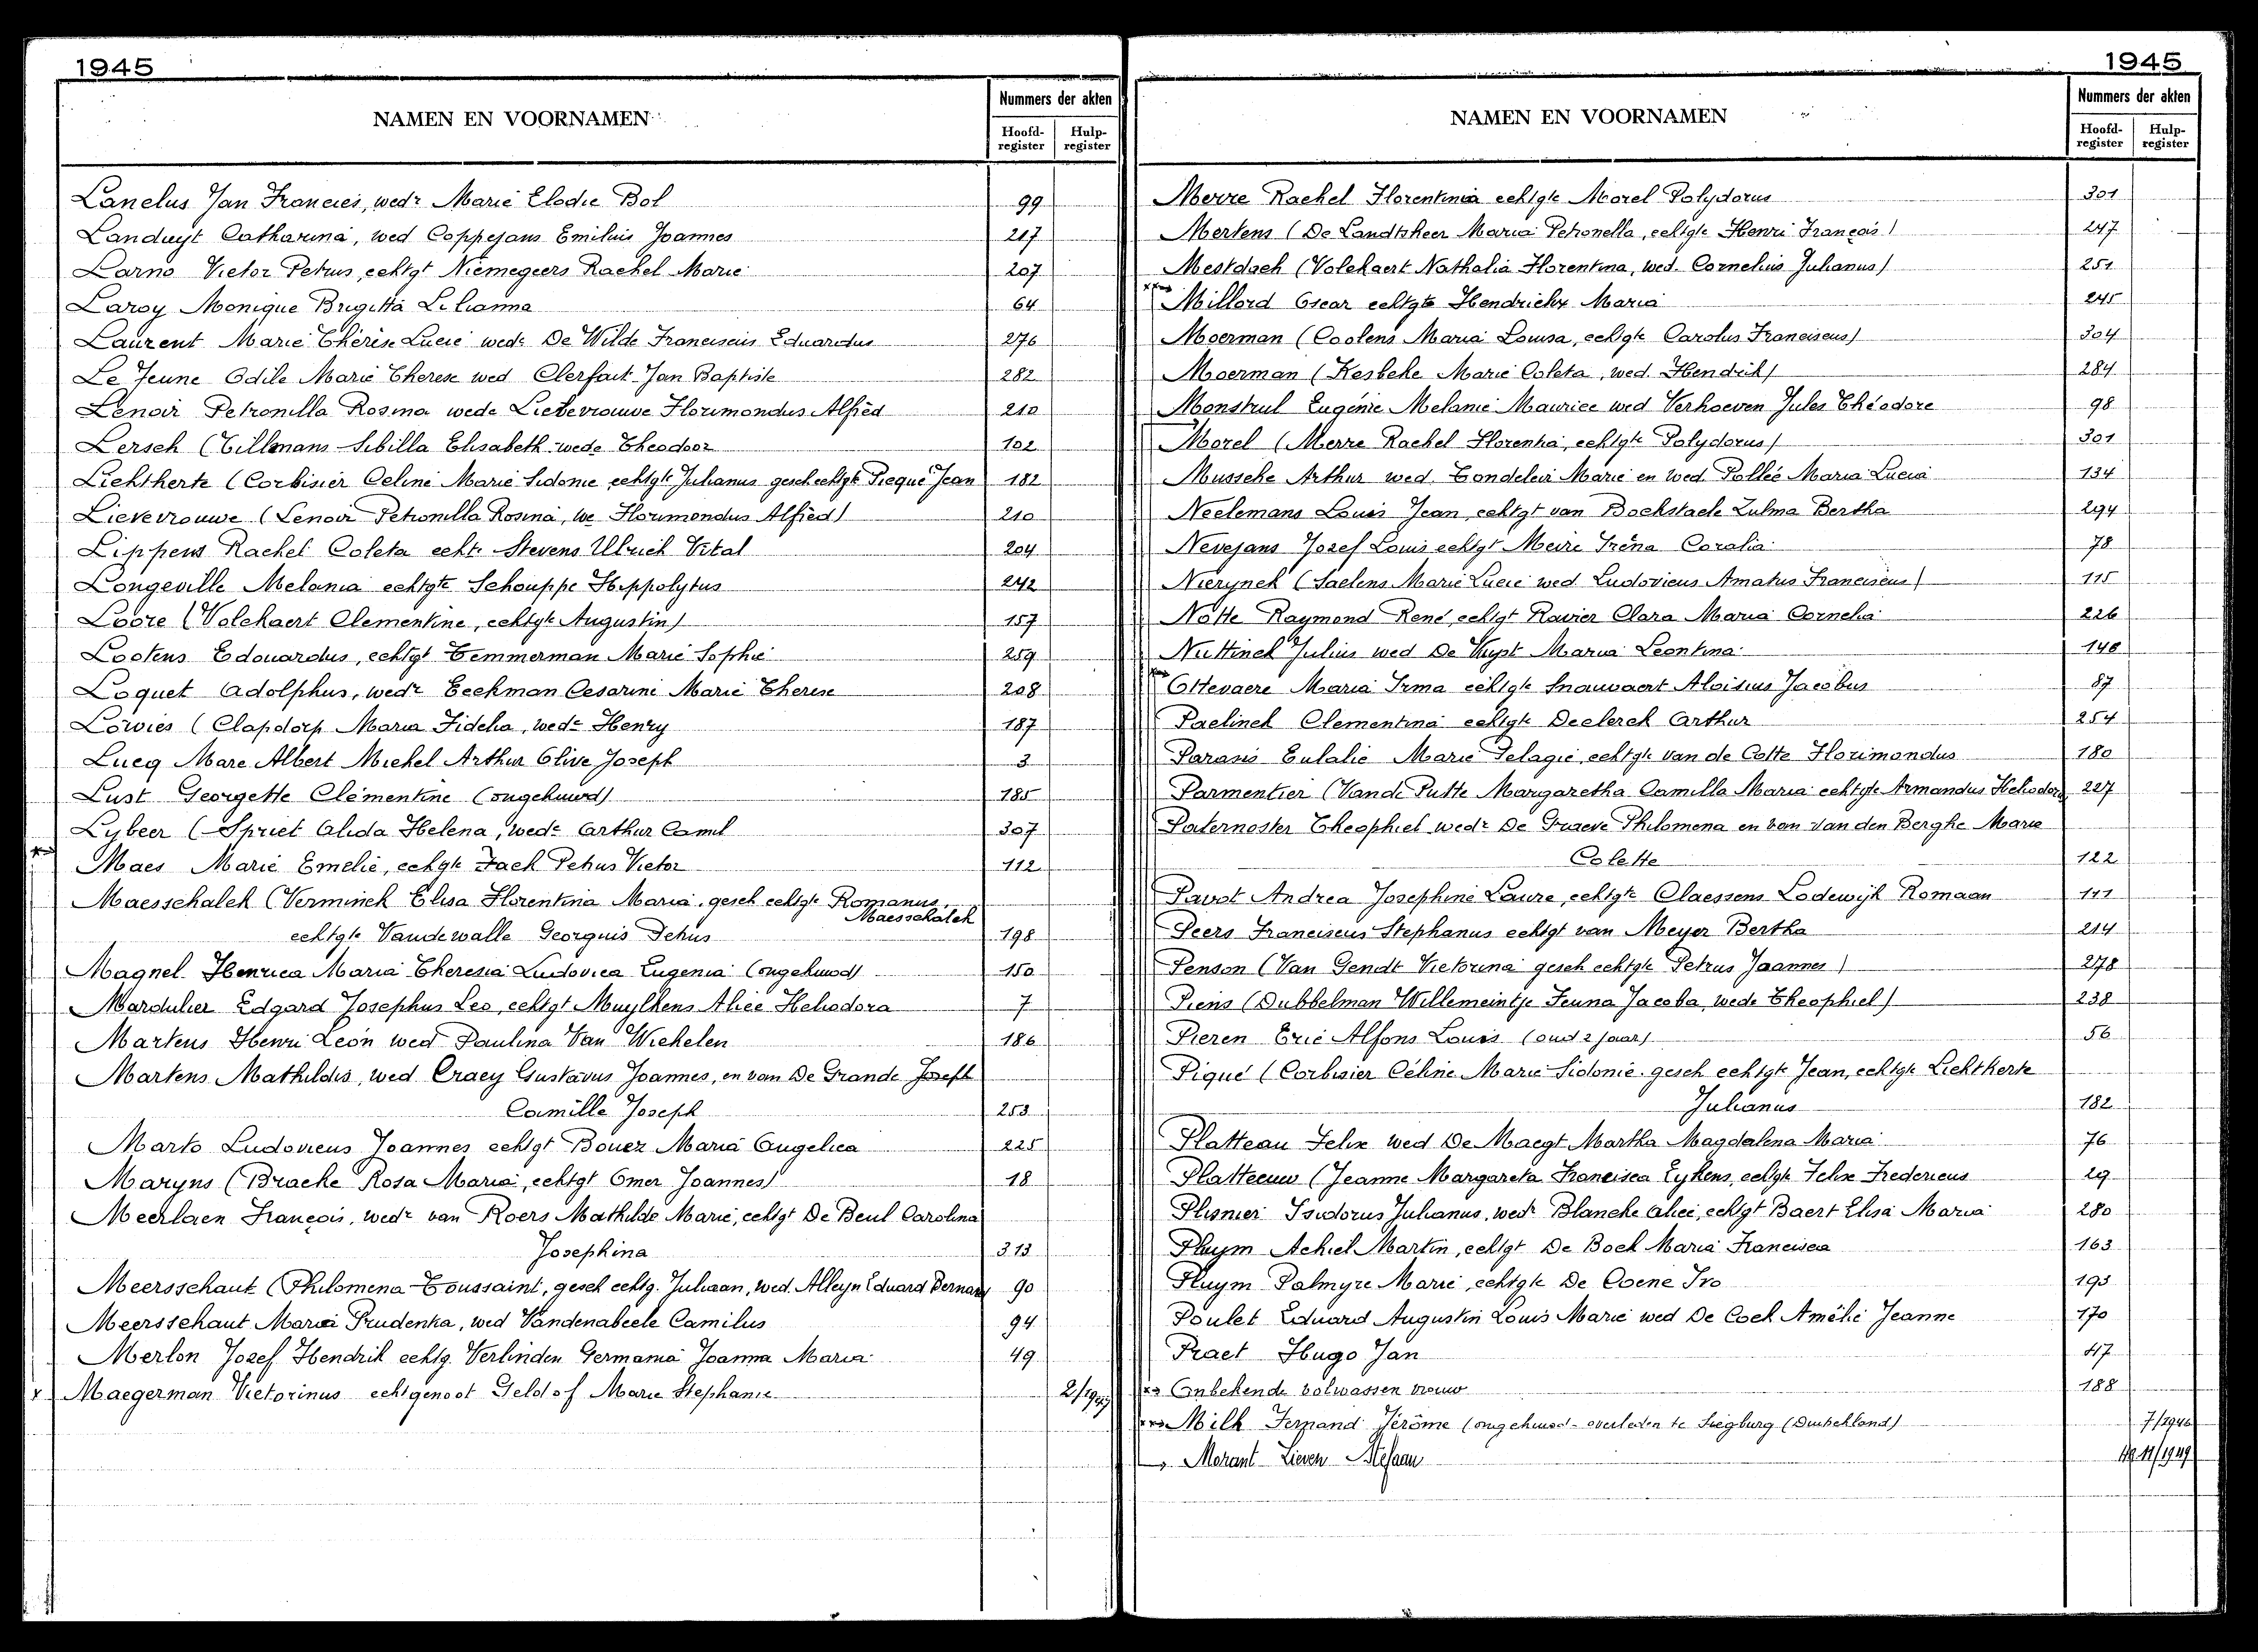 1945
NAMEN EN VOORNAMEN
Nummers der akten
Hoofd-register
Hulp-register
Lanelus Jan Francies, wedr Marie Elodie Bol 99
Landuyt Catharina, wed Coppejans Emilius Joannes 217
Larno Victor Petrus, echtgt Niemegeers Rachel Marie 207
Laroy Monique Brigitta Lilianna 64
Laurent Marie Thérèse Lucie wede De Wilde Franciscus Eduardus 276
Le Jeune Odile Marie Therese wed Clerfait Jan Baptiste 282
Lenoir Petronilla Rosina wede Lievevrouwe Florimondus Alfied 210
Lersch (Tillmans Sibilla Elisabeth wede Theodoor 102
Lichtherte (Corbisier Celine Marie Sidonie echtgte Julianus gesch echtgte Pieque Jean 182
Lievevrouwe (Lenoir Petronilla Rosina, we Florimondus Alfied) 210
Lippens Rachel Coleta echt. Stevens Ulrich Vital 204
Longeville Melania echtgte Schouppe Hippolytus 242
Loore (Volckaert Clementine, echtgte Augustin) 157
Lootens Edouardus, echtgt Temmerman Marie Sophie 259
Loquet Adolphus, wedr Eeckman Cesarini Marie Therese 208
Lowies (Clapdorp Maria Fidelia, wede Henry 187
Lucq Marc Albert Michel Arthur Olive Joseph 3
Lust Georgette Clémentine (ongehuwd) 185
Lybeer (Spriet Alida Helena, wede Arthur Camil 307
Maes Marie Emelie, echtgte Fack Petrus Victor 112
Maesschalck (Verminck Elisa Florentina Maria gesch echtgte Romanus
Maesschalck
echtgte Vandewalle Georguis Petrus 198
Magnel Henrica Maria Theresia Ludovica Eugenia (ongehuwd) 150
Mardulier Edgard Josephus Leo, echtgt Muylkens Alice Heliodora 7
Martens Henri Leon wed Paulina Van Wichelen 186
Martens Mathildis, wed Craey Gustavus Joannes, en van De Grande Joseph
Camille Joseph 253
Marto Ludovicus Joannes echtgt Bouez Maria Angelica 225
Maryns (Bracke Rosa Maria, echtgt Omer Joannes) 18
Meerlaen François, wedr van Roers Mathilde Marie, echtgt De Beul Carolina
Josephina 313
Meersschaut (Philomena Toussaint, gesch echtg. Juliaan, wed. Alleyn Eduard Bernard 90
Meersschaut Maria Prudentia, wed Vandenabeele Camilus 94
Merlon Jozef Hendrik echtg. Verlinden Germania Joanna Maria 49
x Maegerman Victorinus echtgenoot Geldof Marie Stephanie 2/1947
1945
NAMEN EN VOORNAMEN
Nummers der akten
Hoofd-register
Hulp-register
Merre Rachel Florentinia echtgte Morel Polydorus 301
Mertens (De Landtsheer Maria Petronella, echtgte Henri François) 247
Mestdach (Volckaert Nathalia Florentina, wed. Cornelius Julianus) 251
Millord Oscar echtgte Hendrickx Maria 245
Moerman (Coolens Maria Louisa, echtgte Carolus Franciscus) 304
Moerman (Kesbeke Marie Coleta, wed. Hendrik) 284
Monstrul Eugénie Melanie Maurice wed Verhoeven Jules Théodore 98
Morel (Merre Rachel Florentia, echtgte Polydorus) 301
Mussche Arthur wed. Tondeleir Marie en wed. Pollée Maria Lucia 134
Neelemans Louis Jean, echtgt van Bockstaele Zulma Bertha 294
Nevejans Jozef Louis echtgt Meire Iréna Coralia 78
Nierynck (Saelens Marie Lucie wed Ludovicus Amatus Franciscus) 115
Notte Raymond René, echtgt Ravier Clara Maria Cornelia 226
Nuttinck Julius wed De Vuyst Maria Leontina 148
Ottevaere Maria Irma echtgte Snauwaert Aloisius Jacobus 87
Paelinck Clementina echtgte Declerck Arthur 254
Parasis Eulalie Marie Pelagie, echtgte van de Cotte Florimondus 180
Parmentier (Vande Putte Margaretha Camilla Maria echtgte Armandus Heliodorus 227
Paternoster Theophiel wedr De Graeve Philomena en van Van den Berghe Marie
Colette 122
Pavot Andrea Josephine Laure, echtgte Claessens Lodewijk Romaan 111
Peers Franciscus Stephanus echtgt van Meyer Bertha 214
Penson (Van Gendt Victorina gesch echtgte Petrus Joannes) 278
Piens (Dubbelman Willemeintje Jeuna Jacoba, wede Theophiel) 238
Pieren Eric Alfons Louis (oud 2 jaar) 56
Piqué (Corbisier Céline Marie Sidonie gesch echtgte Jean, echtgte Lichtherte
Julianus 182
Platteau Felix wed De Maegt Martha Magdalena Maria 76
Platteeuw (Jeanne Margareta Francisca Eykens, echtgte Felix Fredericus 29
Plisnier Isidorus Julianus, wedr Blanche Alice, echtgt Baert Elisa Maria 280
Pluym Achiel Martin, echtgt De Bock Maria Francisca 163
Pluym Palmyre Marie, echtgte De Coene Ivo 193
Poulet Eduard Augustin Louis Marie wed De Cock Amélie Jeanne 170
Praet Hugo Jan 47
Onbekende volwassen vrouw 188
Milh Fernand Jérôme (ongehuwd - overleden te Siegburg (Duitschland) 7/1946
Morant Lieven Stefaan 11/1949